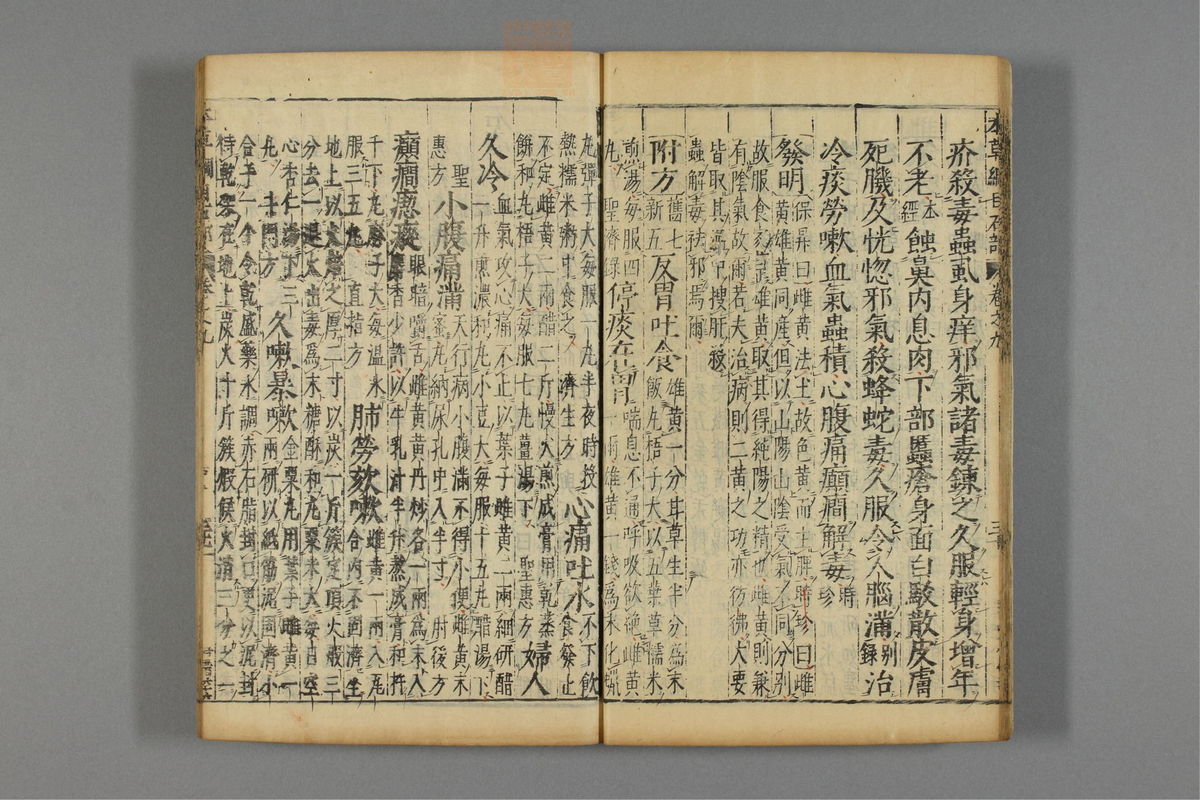 本草綱目石部 卷之九
疥殺毒蟲虱身痒邪氣諸毒鍊之久服輕身增年
不老本經蝕鼻內息肉下部䘌瘡身面白駮散皮膚
死肌及恍惚邪氣殺蜂蛇毒久服令人腦滿别錄治
冷痰勞嗽血氣蟲積心腹痛癲癇解毒時珍
發明保昇曰雌黃法土故色黃而主脾時珍曰雌
黃雄黃同産但以山陽山陰受氣不同分别
故服食家重雄黃取其得純陽之精也雌黃則兼
有陰氣故爾若夫治病則二黃之功亦彷彿大要
皆取其溫中搜肝殺
蟲解毒祛邪焉爾
附方舊七新五反胃吐食雌黃一分甘草生半分爲末飯丸梧子大以五葉草糯米
煎湯每服四丸聖濟錄停痰在胃喘息不通呼吸欲絶雌黃一兩雄黃一錢爲末化蠟
丸彈子大每服一丸半夜時投熱糯米粥中食之濟生方心痛吐水不下飲食發止
不定雌黃二兩醋二斤慢火煎成膏用乾蒸餅和丸梧子大每服七丸薑湯下聖惠方婦人
久冷血氣攻心痛不止以葉子雌黃一兩細研醋一升煎濃和丸小豆大每服十五丸醋湯下
聖惠方小腹痛滿天行病小腹滿不得小便雌黃末蜜丸納尿孔中入半寸肘後方
癲癇瘛瘲眼暗嚼舌雌黃黃丹炒各一兩爲末入麝香少許以牛乳汁半升熬成膏和杵
千下丸麻子大每溫水服三五丸直指方肺勞欬嗽雌黃一兩入瓦合內不固濟坐
地上以灰培之厚二寸以炭一斤簇定頂火煅三
分去一退火出毒爲末蟾酥和丸粟米大每日空
心杏仁湯下三丸斗門方久嗽暴嗽金粟丸用葉子雌黃一兩研以紙筋泥固濟小
合子一个令乾盛藥水調赤石脂封口更以泥封
待乾架在地上炭火十斤簇煅候火消三分之一